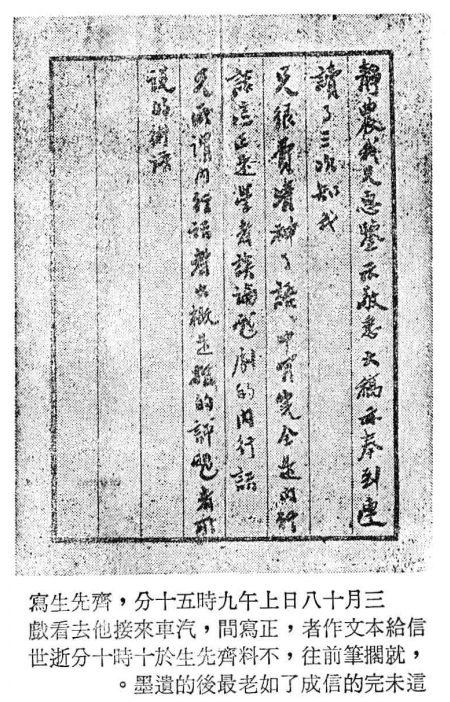 靜農我兄惠鑒示敬悉大稿亦奉到連
讀了三次知我
兄很費精神了語、中肯完全是內行
話這正是學者談論戲劇的內行話
兄所謂內行話者大概是的評戲者所
說的術語
三月十八日上午九時五十分，齊先生寫
信給本文作者，正寫間，汽車來接他去看戲
，就擱筆前往，不料齊先生於十時十分逝世
這未完的信成了如老最後的遺墨。